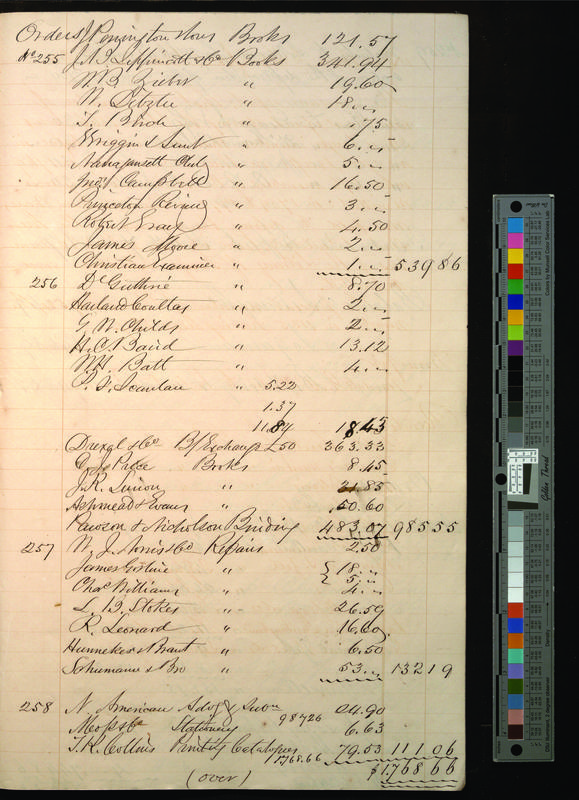 Orders Pennington & Son Books 121.57
No 255 J.B. Lippincott & Co Books 341.94
W.B. Zieber " 19.60
" 18.„
T. Birch " .75
6.„
Naragansett Club " 5.„
Jno. Campbell " 16.50
Princeton Review " 3.„
Robert " 4.50
James Moore " 2.„
Christian Examiner " 1.„ 539 86
256 Dr Guthrie " 8.70
Harland Coultas " 2.„
G.W. Childs " 2.„
H.C. Baird " 13.12
" 4.„
Scanlan " 5.22
1.37
11.84 18.43
Drexel & Co B/Exchange £50 363.33
Books 8.45
J.R. " 21.85
Ashmead & Evans " 50.60
Pawson & Nicholson Binding 483.07 985 55
257 Norris & Co Repairs 2.50
James " { 18.„
{ 5.„
Chas Williams " 4.„
L. D. Stokes " 26.59
R. Leonard " 16.60
Hunneker & Brant " 6.50
Schumann & Bro " 53.„ 132 19
258 N. American Advg & 24.90
Moss & Co Stationery 987 26 6.63
T.K. Collins Printing Catalogues 79.53 111 06
1768.66 $1768 66
(over)